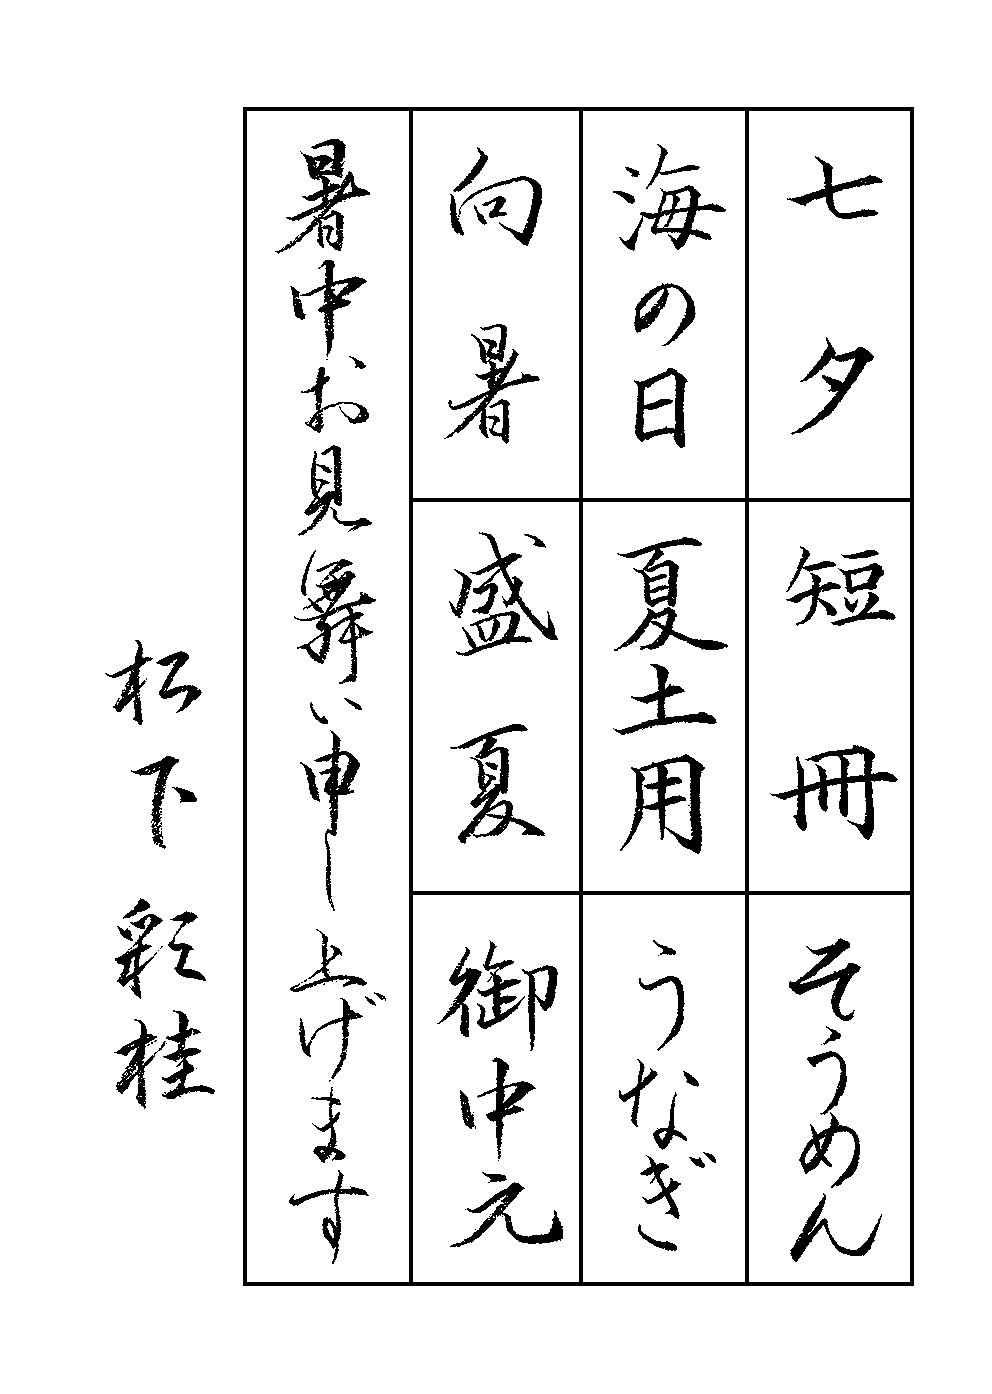 七夕
短冊
そうめん
海の日
夏土用
うなぎ
向暑
盛夏
御中元
暑中お見舞い申し上げます
松下彩桂